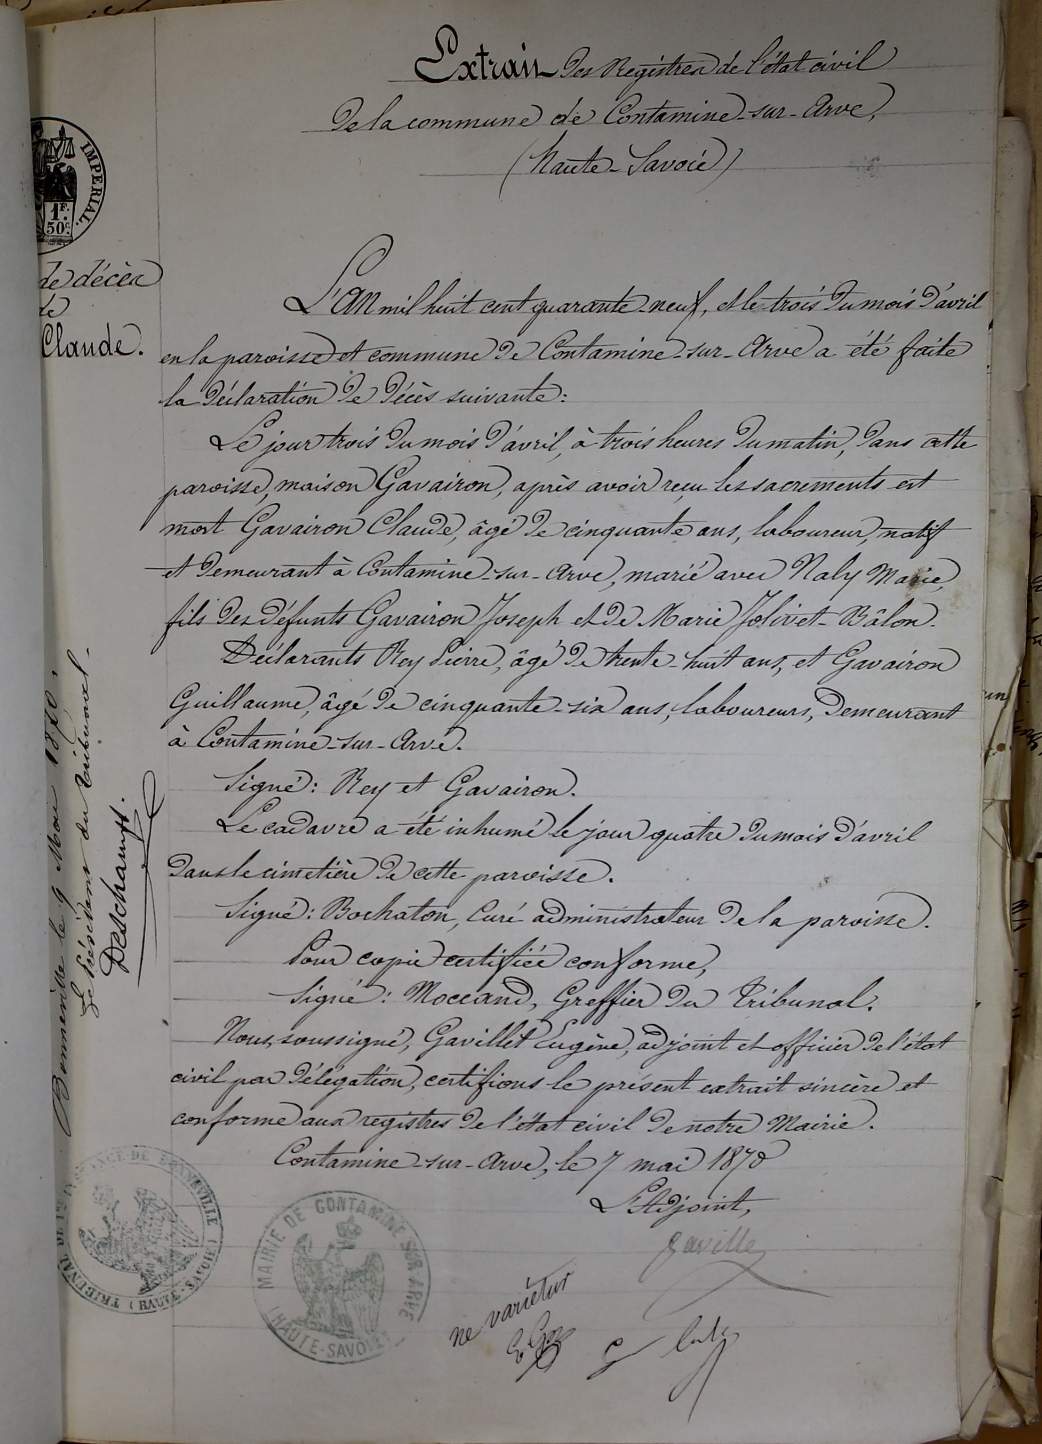 Extrait des Registres de l'état civil
de la commune de Contamine-sur-Arve,
(Haute-Savoie)
IMPERIAL.
1F.
50c.
de décès
de
Claude.
L'An mil huit cent quarante-neuf, et le trois du mois d'avril
en la paroisse et commune de Contamine-sur-Arve a été faite
la déclaration de décès suivante:
Le jour trois du mois d'avril, à trois heures du matin, dans cette
paroisse, maison Gavairon, après avoir reçu les sacrements est
mort Gavairon Claude, âgé de cinquante ans, laboureur, natif
et demeurant à Contamine-sur-Arve, marié avec Naly Marie,
fils des défunts Gavairon Joseph et de Marie Jolivet-Bâlon.
Déclarants Rey Pierre, âgé de trente-huit ans, et Gavairon
Guillaume, âgé de cinquante-six ans, laboureurs, demeurant
à Contamine-sur-Arve.
Signé: Rey et Gavairon.
Le cadavre a été inhumé le jour quatre du mois d'avril
dans le cimetière de cette paroisse.
Signé: Bochaton, Curé administrateur de la paroisse.
Pour copie certifiée conforme,
Signé: Moccand, Greffier du Tribunal.
Nous, soussigné, Gavillet Eugène, adjoint et officier de l'état
civil par délégation, certifions le présent extrait sincère et
conforme aux registres de l'état civil de notre Mairie.
Contamine-sur-Arve, le 7 mai 1870
L'Adjoint,
Gavillet
Bonneville le 9 Mai 1870,
Le Président du Tribunal.
Deschamps.
TRIBUNAL DE 1RE INSTANCE DE BONNEVILLE (HAUTE-SAVOIE)
MAIRIE DE CONTAMINE SUR ARVE
(HAUTE-SAVOIE)
ne varietur